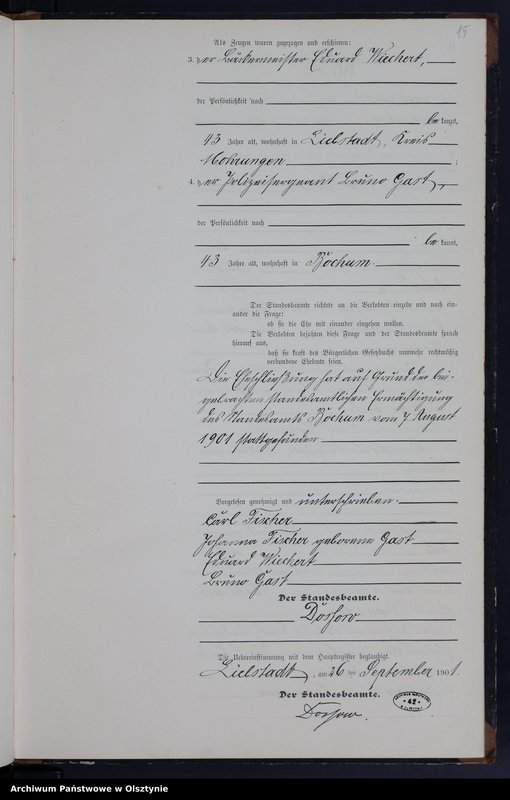 15
Als Zeugen waren zugezogen und erschienen:
3. der Bäckermeister Eduard Wiechert,
der Persönlichkeit nach
bekannt,
43 Jahre alt, wohnhaft in Liebstadt, Kreis
Mohrungen ;
4. der Polizeisergeant Bruno Gast,
der Persönlichkeit nach
bekannt,
43 Jahre alt, wohnhaft in Bochum.
Der Standesbeamte richtete an die Verlobten einzeln und nach ein-
ander die Frage:
ob sie die Ehe mit einander eingehen wollen.
Die Verlobten bejahten diese Frage und der Standesbeamte sprach
hierauf aus,
daß sie kraft des Bürgerlichen Gesetzbuchs nunmehr rechtmäßig
verbundene Eheleute seien.
Die Eheschließung hat auf Grund der bei-
gebrachten standesamtlichen Ermächtigung
des Standesamts Bochum vom 7. August
1901 stattgefunden
Vorgelesen genehmigt und unterschrieben.
Carl Fischer
Johanna Fischer geborene Gast
Eduard Wiechert
Bruno Gast
Der Standesbeamte.
Dossow
Die Uebereinstimmung mit dem Hauptregister beglaubigt.
Liebstadt, am 26 ten September 1901.
Der Standesbeamte.
Dossow.
42
Archiwum Państwowe w Olsztynie